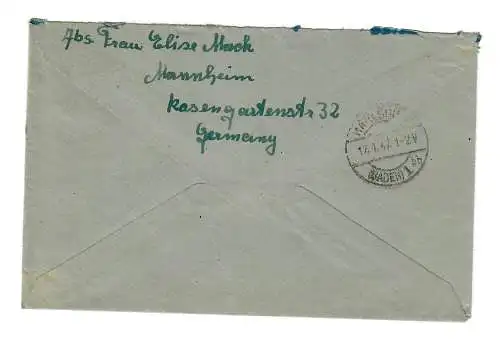 Abs. Frau Elise Mack
Mannheim
Rosengartenstr 32
Germany
1-2V
(BADEN) 1